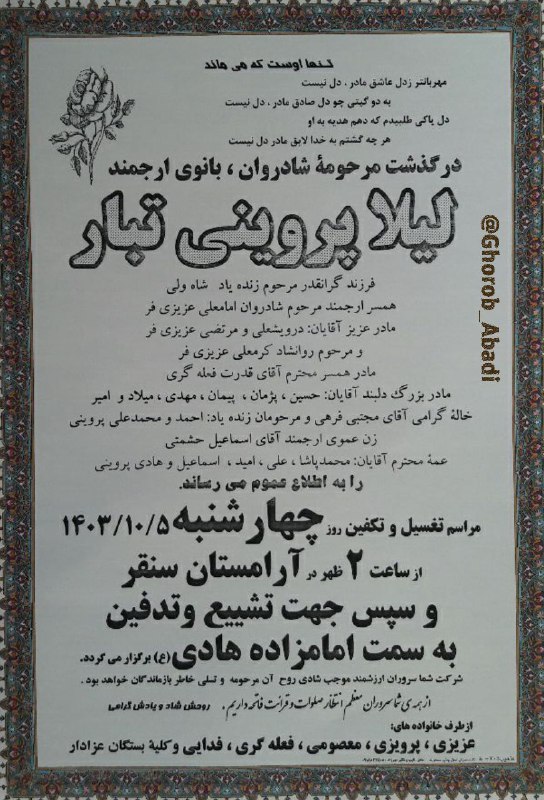 تنها اوست که می ماند
مهربانتر زدل عاشق مادر، دل نیست
به دو گیتی چو دل صادق مادر، دل نیست
دل پاکی طلبیدم که دهم هدیه به او
هر چه گشتم به خدا لایق مادر دل نیست
درگذشت مرحومۀ شادروان، بانوی ارجمند
لیلا پروینی تبار
فرزند گرانقدر مرحوم زنده یاد شاه ولی
همسر ارجمند مرحوم شادروان امامعلی عزیزی فر
مادر عزیز آقایان: درویشعلی و مرتضی عزیزی فر
و مرحوم روانشاد کرمعلی عزیزی فر
مادر همسر محترم آقای قدرت فعله گری
مادر بزرگ دلبند آقایان: حسین، پژمان، پیمان، مهدی، میلاد و امیر
خالۀ گرامی آقای مجتبی فرهی و مرحومان زنده یاد: احمد و محمدعلی پروینی
زن عموی ارجمند آقای اسماعیل حشمتی
عمۀ محترم آقایان: محمدپاشا، علی، امید، اسماعیل و هادی پروینی
را به اطلاع عموم می رساند.
مراسم تغسیل و تکفین روز چهارشنبه ۱۴۰۳/۱۰/۵
از ساعت ۲ ظهر در آرامستان سنقر
و سپس جهت تشییع وتدفین
به سمت امامزاده هادی (ع) برگزار می گردد.
شرکت شما سروران ارزشمند موجب شادی روح آن مرحومه و تسلی خاطر بازماندگان خواهد بود.
از همه ی شما سروران معظم انتظار صلوات و قرائت فاتحه داریم. روحش شاد و یادش گرامی
ازطرف خانواده های:
عزیزی، پرویزی، معصومی، فعله گری، فدایی و کلیۀ بستگان عزادار
@Ghorob_Abadi